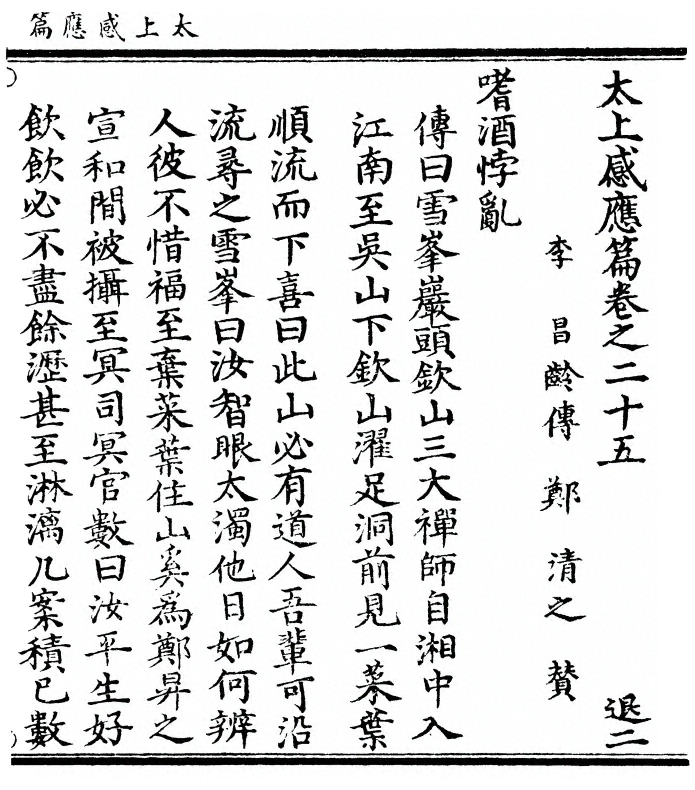 太上感應篇
太上感應篇卷之二十五
退二
李昌齡傳 鄭清之贊
嗜酒悖亂
傳曰雪峯巖頭欽山三大禪師自湘中入
江南至吳山下欽山濯足洞前見一菜葉
順流而下喜曰此山必有道人吾輩可沿
流尋之雪峯曰汝智眼太濁他日如何辨
人彼不惜福至棄菜葉住山奚爲鄭昇之
宣和間被攝至冥司冥官數曰汝平生好
飲飲必不盡餘瀝甚至淋漓几案積已數